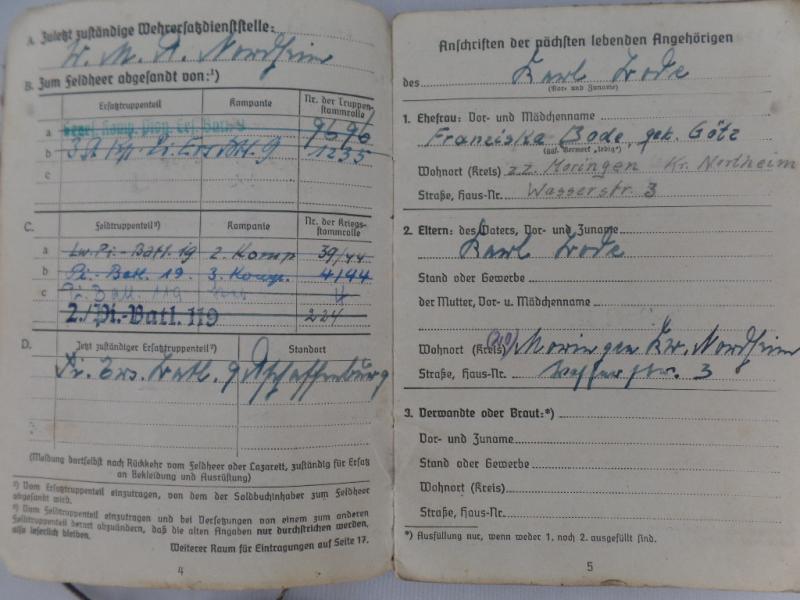 A. Zuletzt zuständige Wehrersatzdienststelle:
W. M. A. Nordheim
B. Zum Feldheer abgesandt von:¹)
Ersatztruppenteil Kompanie Nr. der Truppenstammrolle
a Genes. Komp. Pion. Ers. Batl. 9 9696
b 3. St. Kp. Pi. Ers. Btl. 9 1235
c
C.
Feldtruppenteil²) Kompanie Nr. der Kriegsstammrolle
a Lw. Pi.-Batl. 19 2. Komp 39/44
b Pi.-Batl. 19. 3. Komp. 4144
c Pi. Batl. 119
2./Pi.-Batl. 119 224
D.
Jetzt zuständiger Ersatztruppenteil²) Standort
Pi. Ers. Batl. 9 Aschaffenburg
(Meldung dortselbst nach Rückkehr vom Feldheer oder Lazarett, zuständig für Ersatz
an Bekleidung und Ausrüstung)
¹) Vom Ersatztruppenteil einzutragen, von dem der Soldbuchinhaber zum Feldheer
abgesandt wird.
²) Vom Feldtruppenteil einzutragen und bei Versetzungen von einem zum anderen
Feldtruppenteil derart abzuändern, daß die alten Angaben nur durchstrichen werden,
also leserlich bleiben.
Weiterer Raum für Eintragungen auf Seite 17.
4
Anschriften der nächsten lebenden Angehörigen
des Karl Bode
(Vor- und Zuname)
1. Ehefrau: Vor- und Mädchenname
Franziska Bode, geb. Götz
(ggf. Vermerk „ledig")
Wohnort (Kreis) zz. Moringen Kr. Northeim
Straße, Haus-Nr. Wasserstr. 3
2. Eltern: des Vaters, Vor- und Zuname
Karl Bode
Stand oder Gewerbe
der Mutter, Vor- u. Mädchenname
Wohnort (Kreis) (20) Moringen Kr. Nordheim
Straße, Haus-Nr. Wasserstr. 3
3. Verwandte oder Braut:*)
Vor- und Zuname
Stand oder Gewerbe
Wohnort (Kreis)
Straße, Haus-Nr.
*) Ausfüllung nur, wenn weder 1. noch 2. ausgefüllt sind.
5